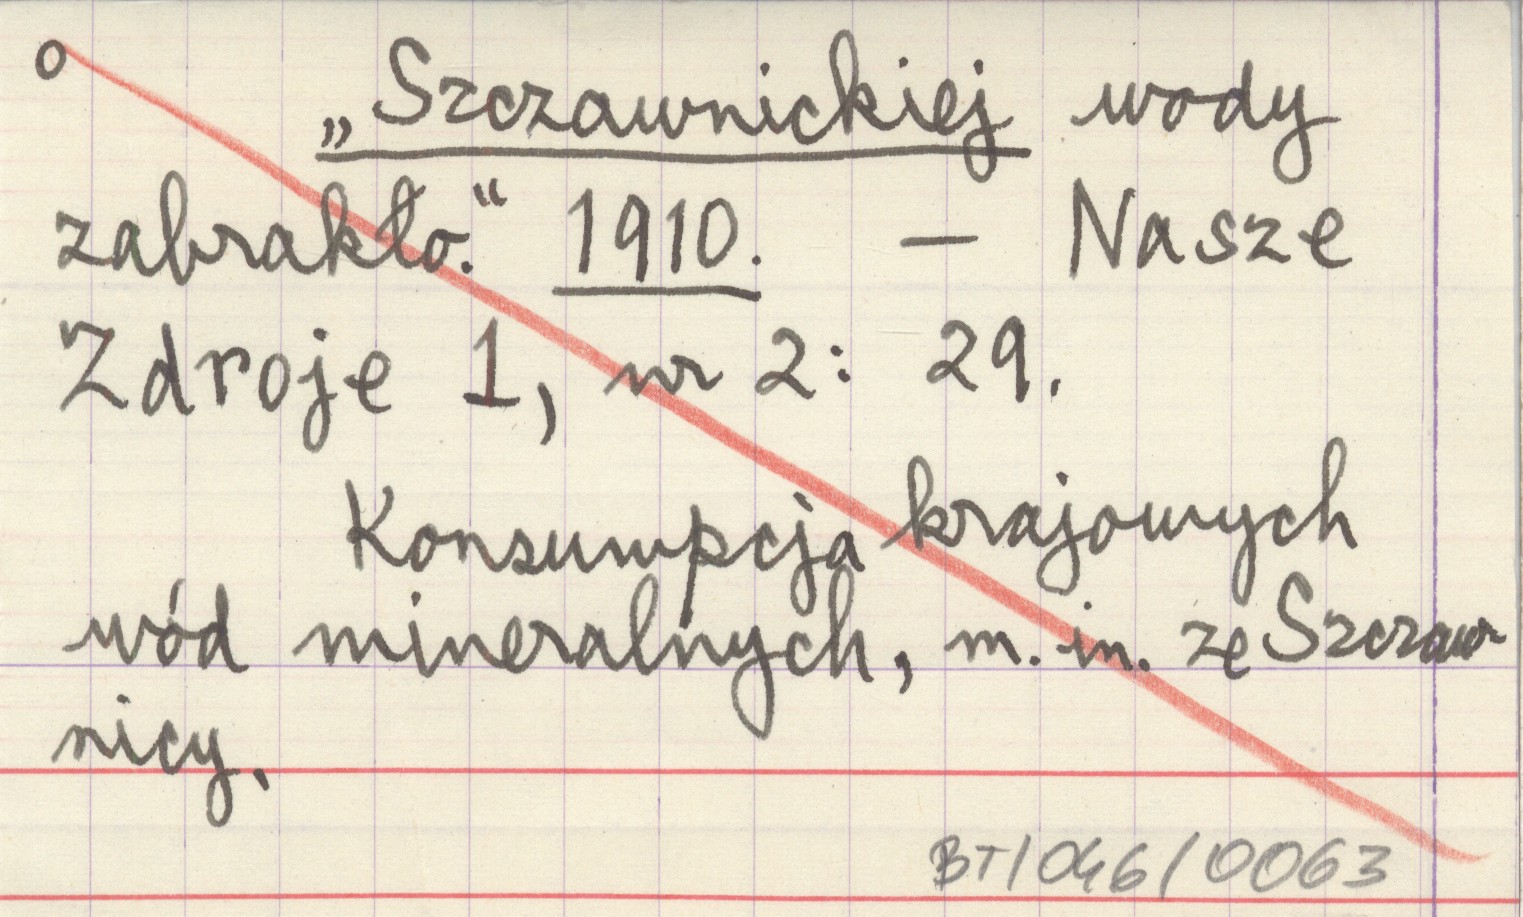 o
„Szczawnickiej wody
zabrakło.“ 1910. — Nasze
Zdroje 1, nr 2: 29.
Konsumpcja krajowych
wód mineralnych, m. in. ze Szczaw-
nicy.
BT/046/0063